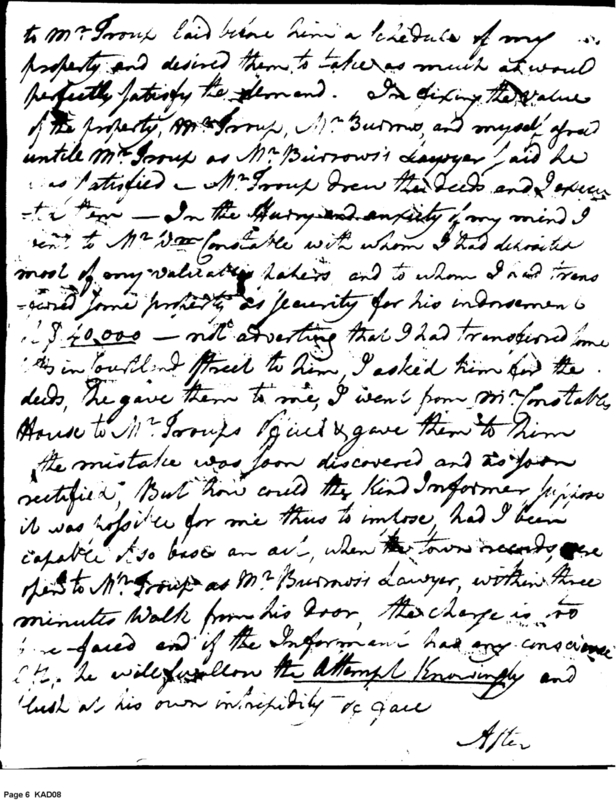 to Mr Troup laid before him a Schedule of my
property and desired them to take as much as woul
perfectly satisfy the demand. In fixing the value
of the property, Mr Troup, Mr Burrows, and myself, agreed
untile Mr Troup as Mr Burrows's Lawyer said he
was satisfied – Mr Troup drew the deeds and I execu
-ted them – In the Hurry and anxiety of my mind I
went to Mr Wm Constable with whom I had deposited
most of my valuable papers and to whom I had trans
-ferred some property as security for his indorsement
$ 40,000 – not adverting that I had transferred some
lots in Courtland Street to him, I asked him for the
deeds, he gave them to me, I went from Mr Constables
House to Mr Troups & gave them to him
the mistake was soon discovered and as soon
rectified, But how could the Kind Informer suppose
it was possible for me thus to impose, had I been
capable of so base an act, when the town records, were
open to Mr Troup as Mr Burrows's Lawyer, within three
minutes walk from his door, the charge is too
faced and if the Informant had any conscience
he will swallow the Attempt Knowingly and
blush at his own intrepidity of face
After
Page 6 KAD08